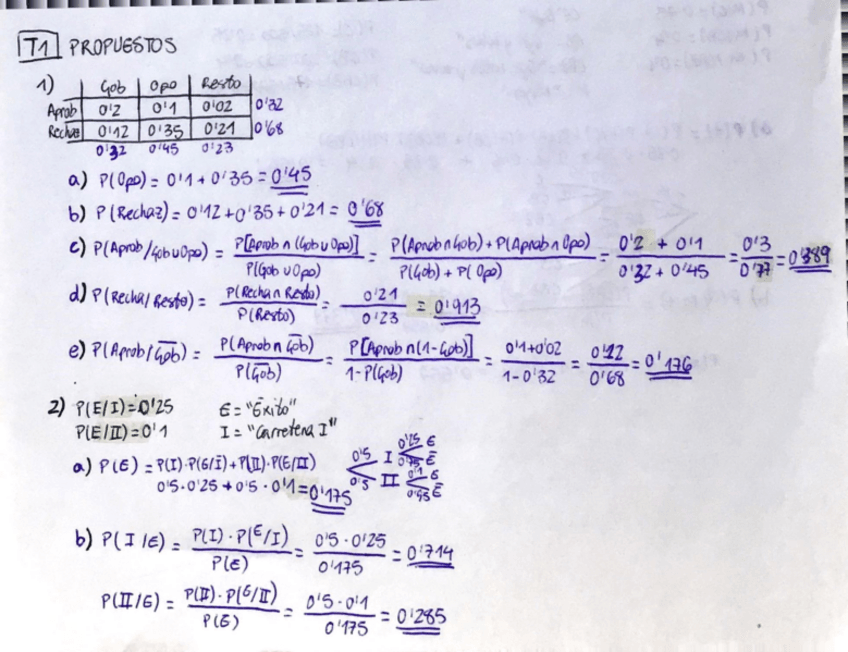 T1 PROPUESTOS
1) Gob Opo Resto
Aprob 0'2 0'1 0'02 0'32
Rechaz 0'12 0'35 0'21 0'68
0'32 0'45 0'23
a) P(Opo) = 0'1 + 0'35 = 0'45
b) P(Rechaz) = 0'12 + 0'35 + 0'21 = 0'68
c) P(Aprob/Gob∪Opo) = P[Aprob ∩ (Gob ∪ Opo)] / P(Gob ∪ Opo) = P(Aprob∩Gob) + P(Aprob∩Opo) / P(Gob) + P(Opo) = 0'2 + 0'1 / 0'32 + 0'45 = 0'3 / 0'77 = 0'389
d) P(Recha/Resto) = P(Recha ∩ Resto) / P(Resto) = 0'21 / 0'23 = 0'913
e) P(Aprob/G̅o̅b̅) = P(Aprob ∩ G̅o̅b̅) / P(G̅o̅b̅) = P[Aprob ∩ (1-Gob)] / 1-P(Gob) = 0'1+0'02 / 1-0'32 = 0'12 / 0'68 = 0'176
2) P(E/I) = 0'25 E = "Éxito"
P(E/II) = 0'1 I = "Carretera I"
a) P(E) = P(I)·P(E/I) + P(II)·P(E/II)
0'5 · 0'25 + 0'5 · 0'1 = 0'175
0'5 I 0'25 E
0'75 E̅
0'5 II 0'1 E
E̅
b) P(I/E) = P(I) · P(E/I) / P(E) = 0'5 · 0'25 / 0'175 = 0'714
P(II/E) = P(II) · P(E/II) / P(E) = 0'5 · 0'1 / 0'175 = 0'285